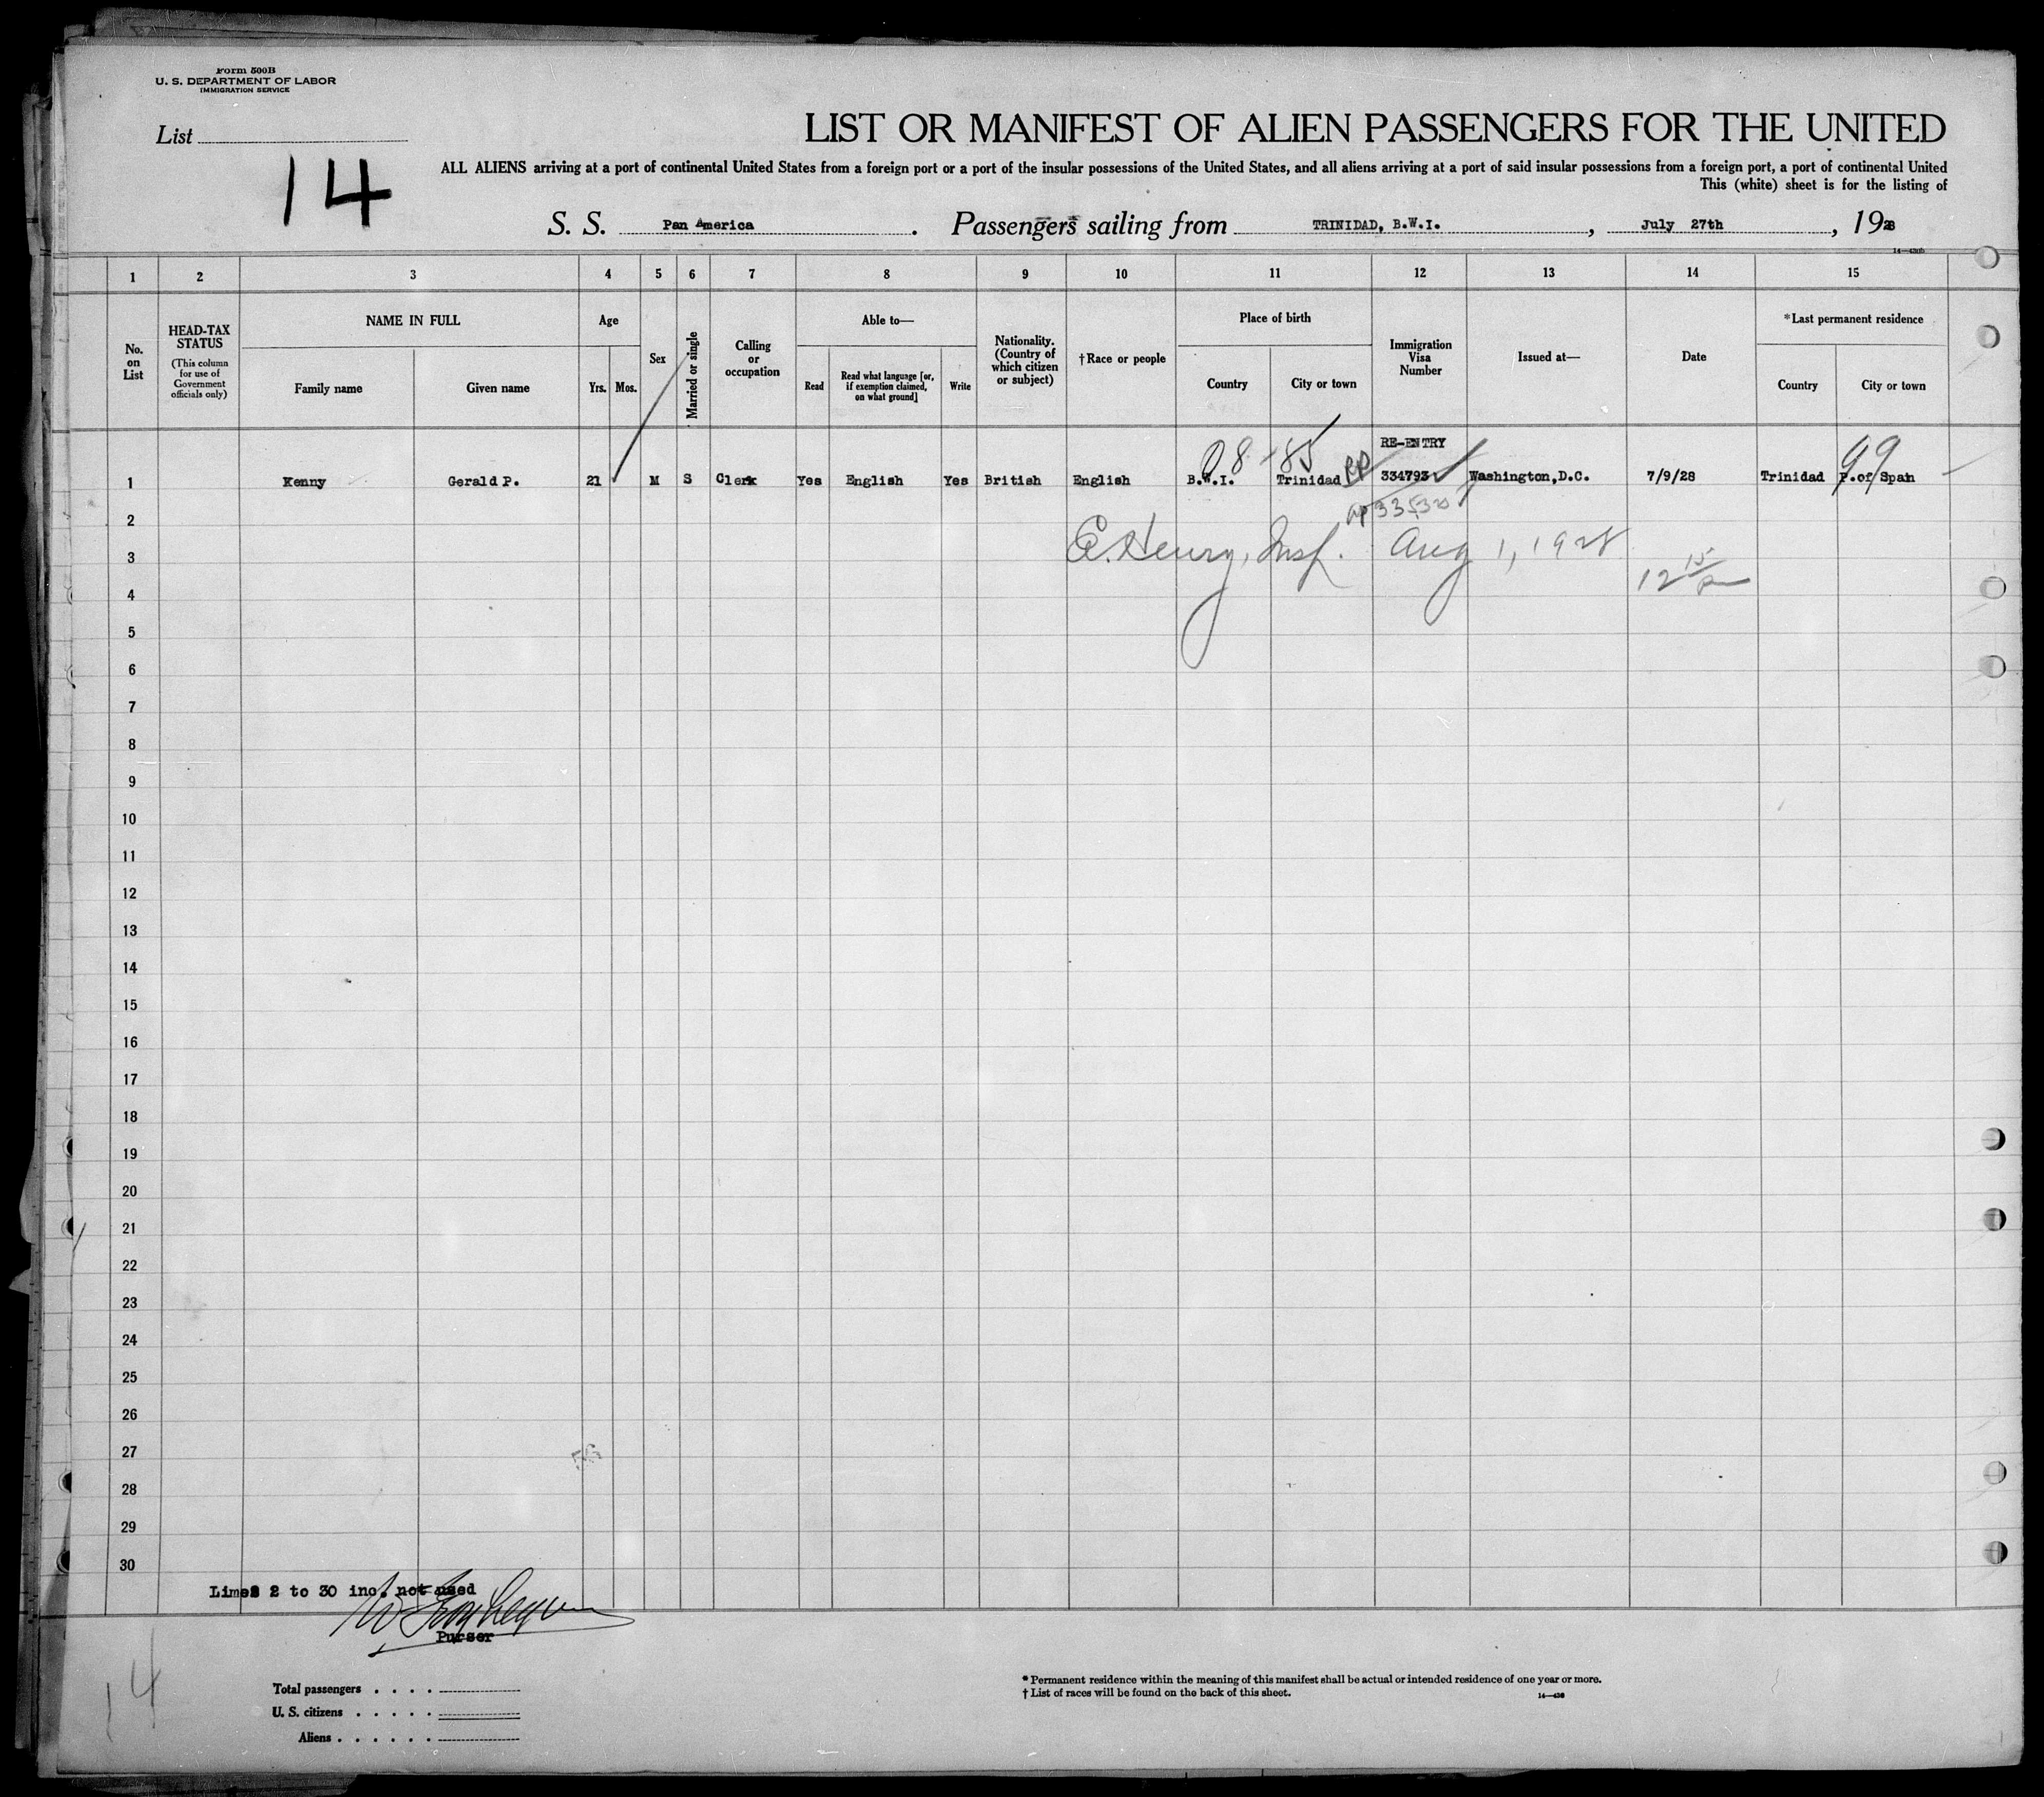 Form 500B
U. S. DEPARTMENT OF LABOR
IMMIGRATION SERVICE
List
14
LIST OR MANIFEST OF ALIEN PASSENGERS FOR THE UNITED
ALL ALIENS arriving at a port of continental United States from a foreign port or a port of the insular possessions of the United States, and all aliens arriving at a port of said insular possessions from a foreign port, a port of continental United
This (white) sheet is for the listing of
S. S. Pan America . Passengers sailing from TRINIDAD, B.W.I. , July 27th , 1928
14—430b
1 2 3 4 5 6 7 8 9 10 11 12 13 14 15
No. on List
HEAD-TAX STATUS (This column for use of Government officials only)
NAME IN FULL
Family name
Given name
Age
Yrs. Mos.
Sex
Married or single
Calling or occupation
Able to—
Read
Read what language [or, if exemption claimed, on what ground]
Write
Nationality. (Country of which citizen or subject)
†Race or people
Place of birth
Country
City or town
Immigration Visa Number
Issued at—
Date
*Last permanent residence
Country
City or town
08-85
RE-ENTRY
99
1 Kenny Gerald P. 21 M S Clerk Yes English Yes British English B.W.I. Trinidad 334793 Washington,D.C. 7/9/28 Trinidad P.of Spain
2
3 E. Henry, Insp. Aug 1, 1928
12 15
4
5
6
7
8
9
10
11
12
13
14
15
16
17
18
19
20
21
22
23
24
25
26
27
28
29
30
Lines 2 to 30 inc. not used
Purser
14
Total passengers
U. S. citizens
Aliens
* Permanent residence within the meaning of this manifest shall be actual or intended residence of one year or more.
† List of races will be found on the back of this sheet.
14—430